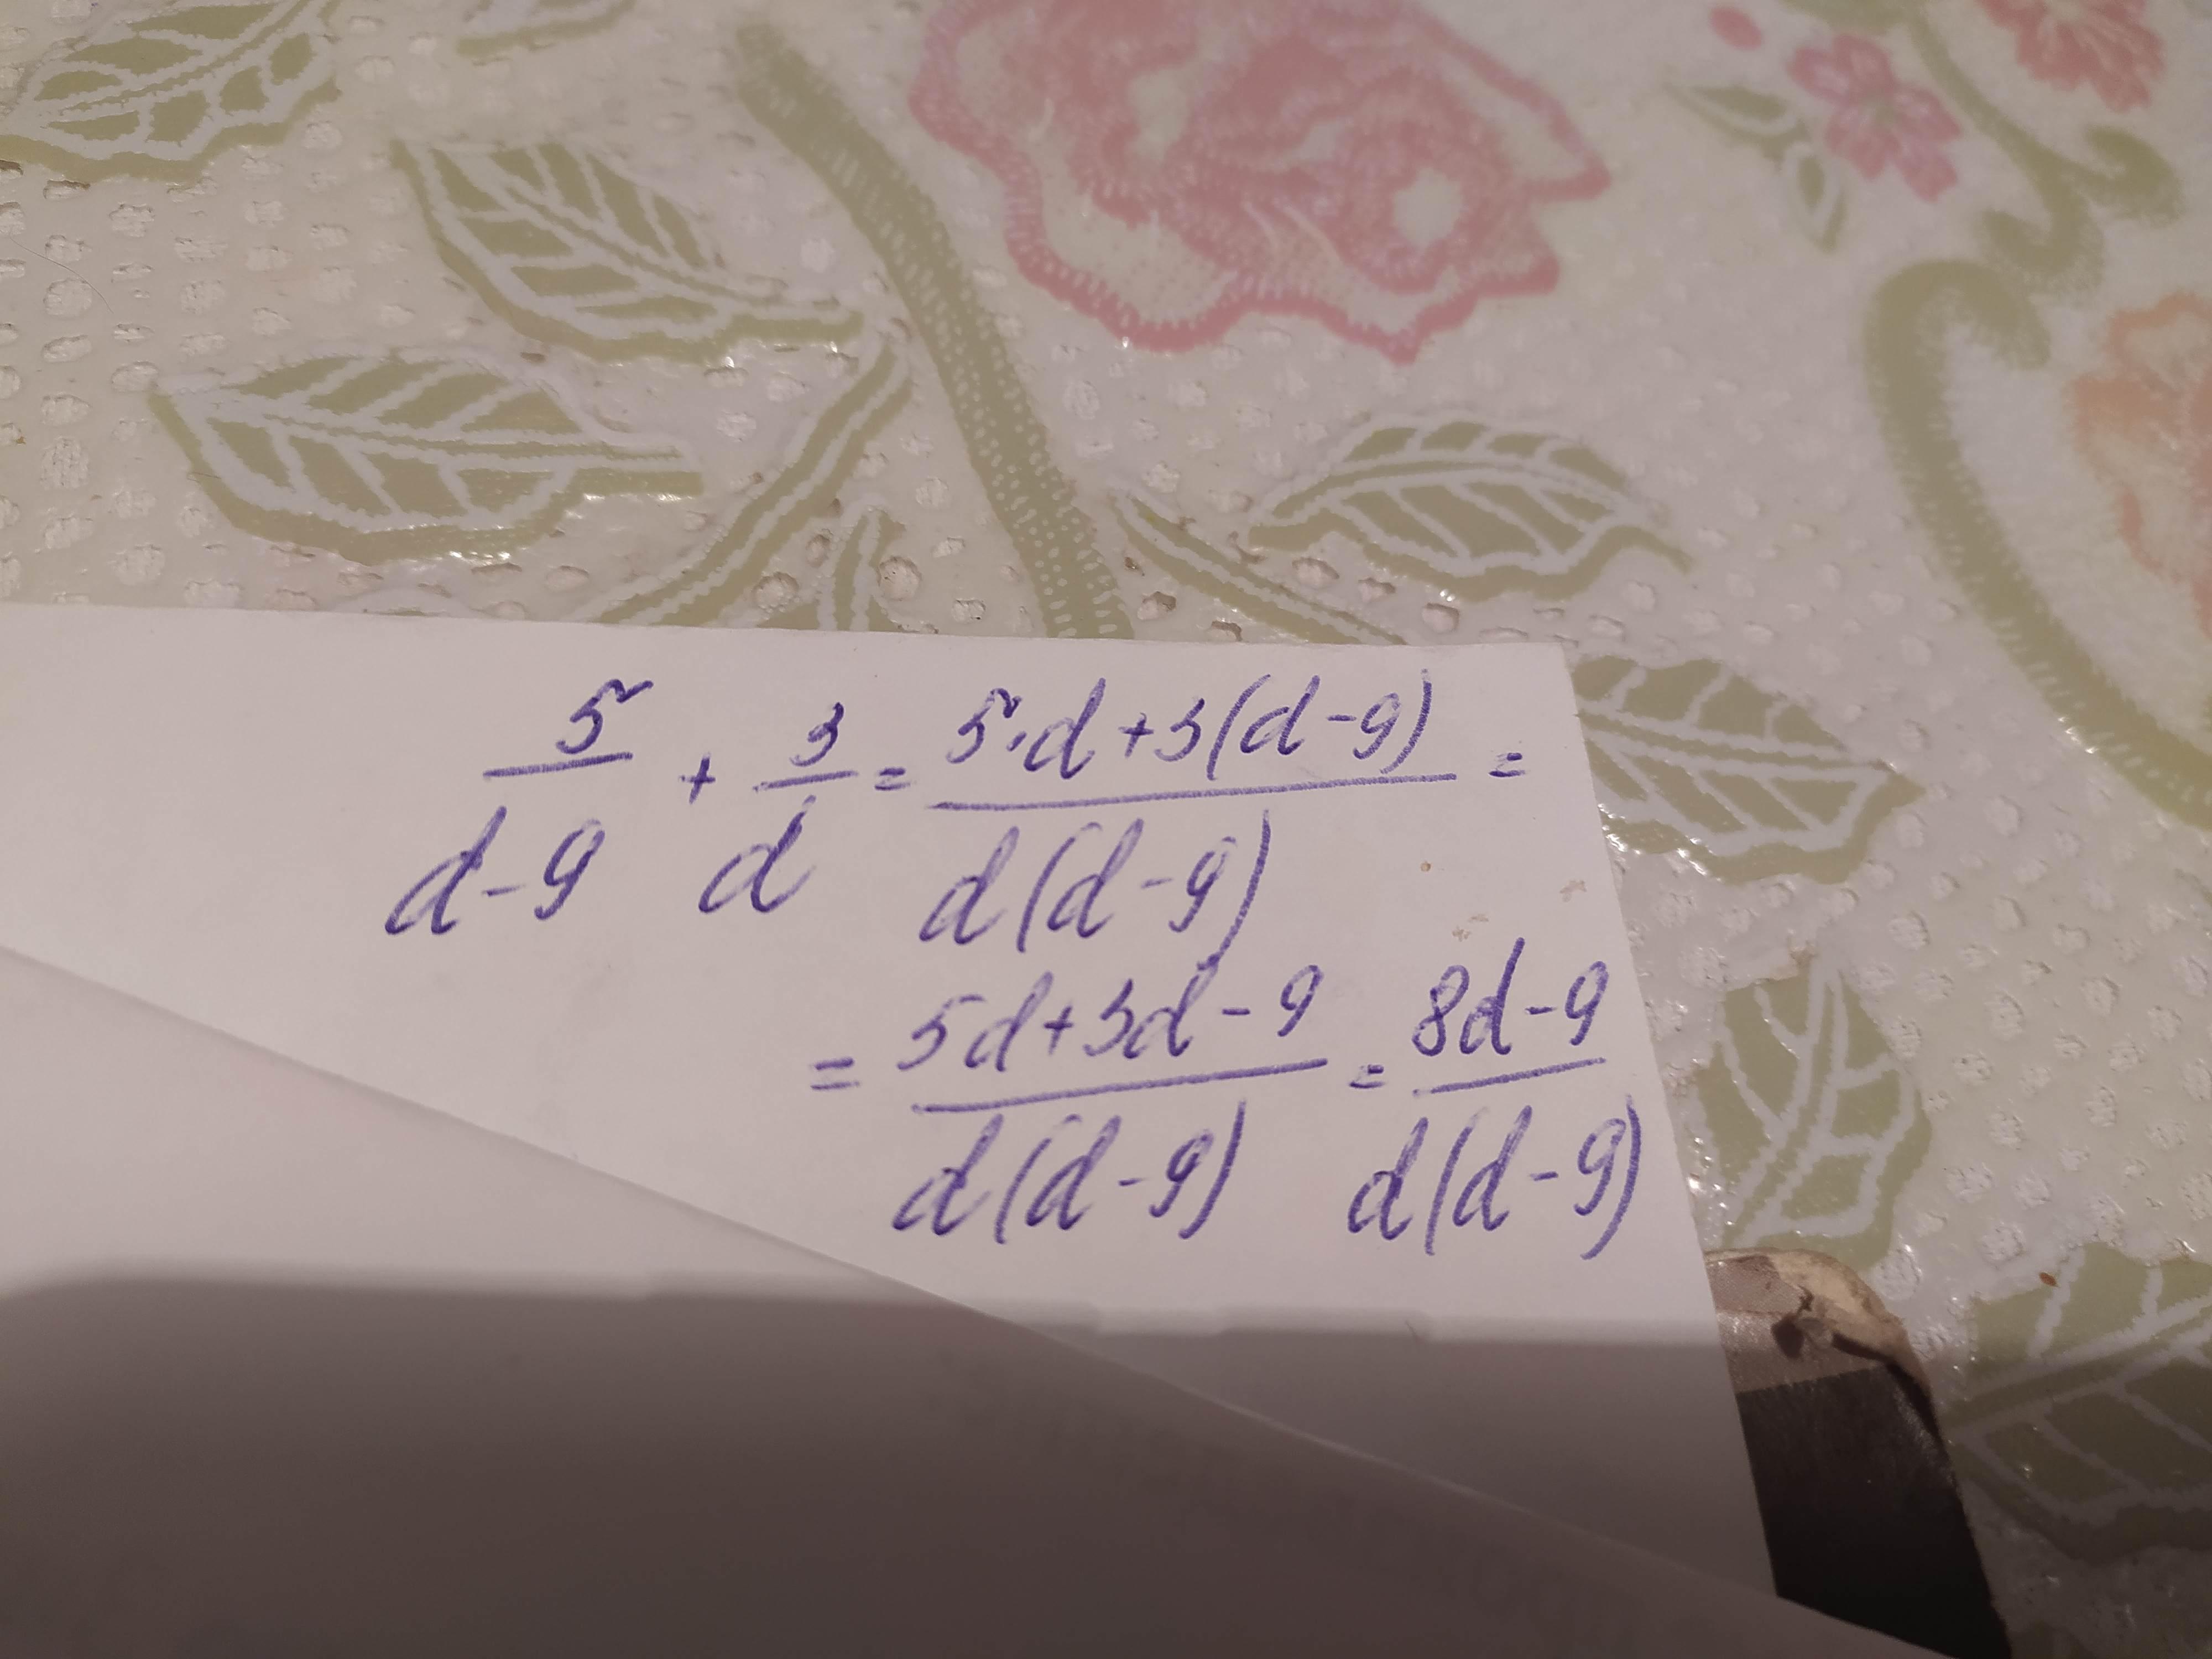 5/(d-9) + 3/d = (5·d+3(d-9))/(d(d-9)) =
= (5d+3d-9)/(d(d-9)) = (8d-9)/(d(d-9))